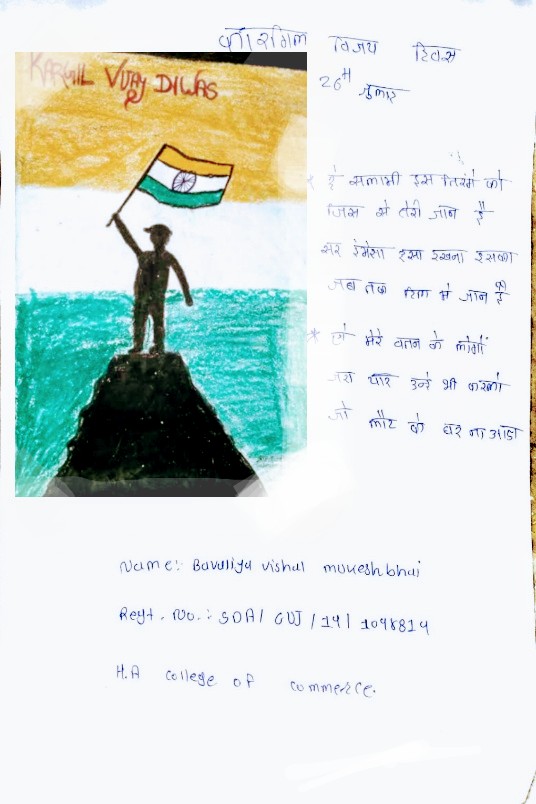 कारगिल विजय दिवस
26th जुलाई
KARGIL VIJAY DIWAS
है सलामी इस तिरंगे को
जिस से तेरी जान है
सर हमेशा रखना इसका
जब तक दिल मे जान है
* ऐ मेरे वतन के लोगों
जरा याद उन्हे भी करलो
जो लौट के घर ना आए
Name:- Bavaliya vishal mukeshbhai
Regt. No.: SDA/ GUJ / 19/
H.A college of commerce.